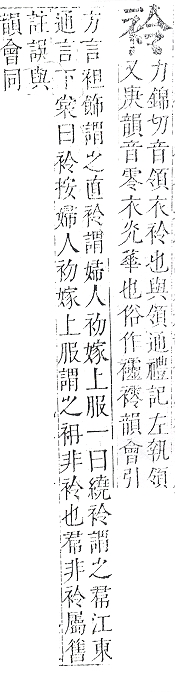 袊
力錦切音領衣袊也與領通禮記左執領
又庚韻音零衣光華也俗作韻會引
方言袒飾謂之直袊謂婦人初嫁上服一曰繞袊謂之帬江東
通言下裳曰袊按婦人初嫁上服謂之袡非袊也帬非袊屬舊
註誤與
韻會同